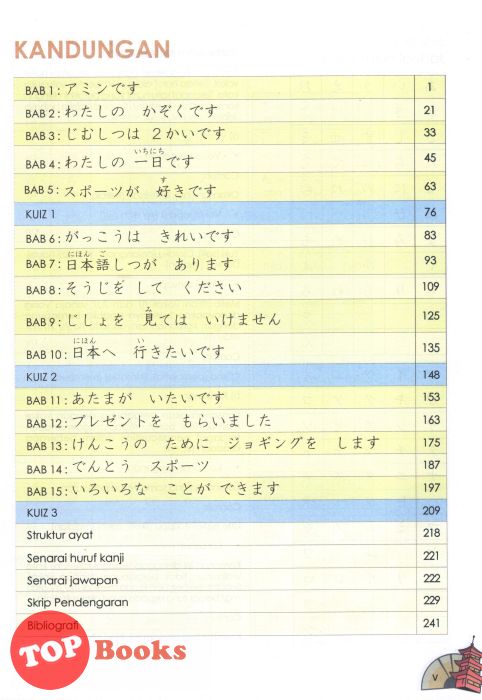 KANDUNGAN
BAB 1 : アミンです 1
BAB 2 : わたしの かぞくです 21
BAB 3 : じむしつは 2かいです 33
BAB 4 : わたしの 一日です 45
いちにち
BAB 5 : スポーツが 好きです 63
す
KUIZ 1 76
BAB 6 : がっこうは きれいです 83
BAB 7 : 日本語しつが あります 93
にほん ご
BAB 8 : そうじを して ください 109
BAB 9 : じしょを 見ては いけません 125
み
BAB 10 : 日本へ 行きたいです 135
にほん い
KUIZ 2 148
BAB 11 : あたまが いたいです 153
BAB 12 : プレゼントを もらいました 163
BAB 13 : けんこうの ために ジョギングを します 175
BAB 14 : でんとう スポーツ 187
BAB 15 : いろいろな ことが できます 197
KUIZ 3 209
Struktur ayat 218
Senarai huruf kanji 221
Senarai jawapan 222
Skrip Pendengaran 229
Bibliografi 241
TOP Books
v